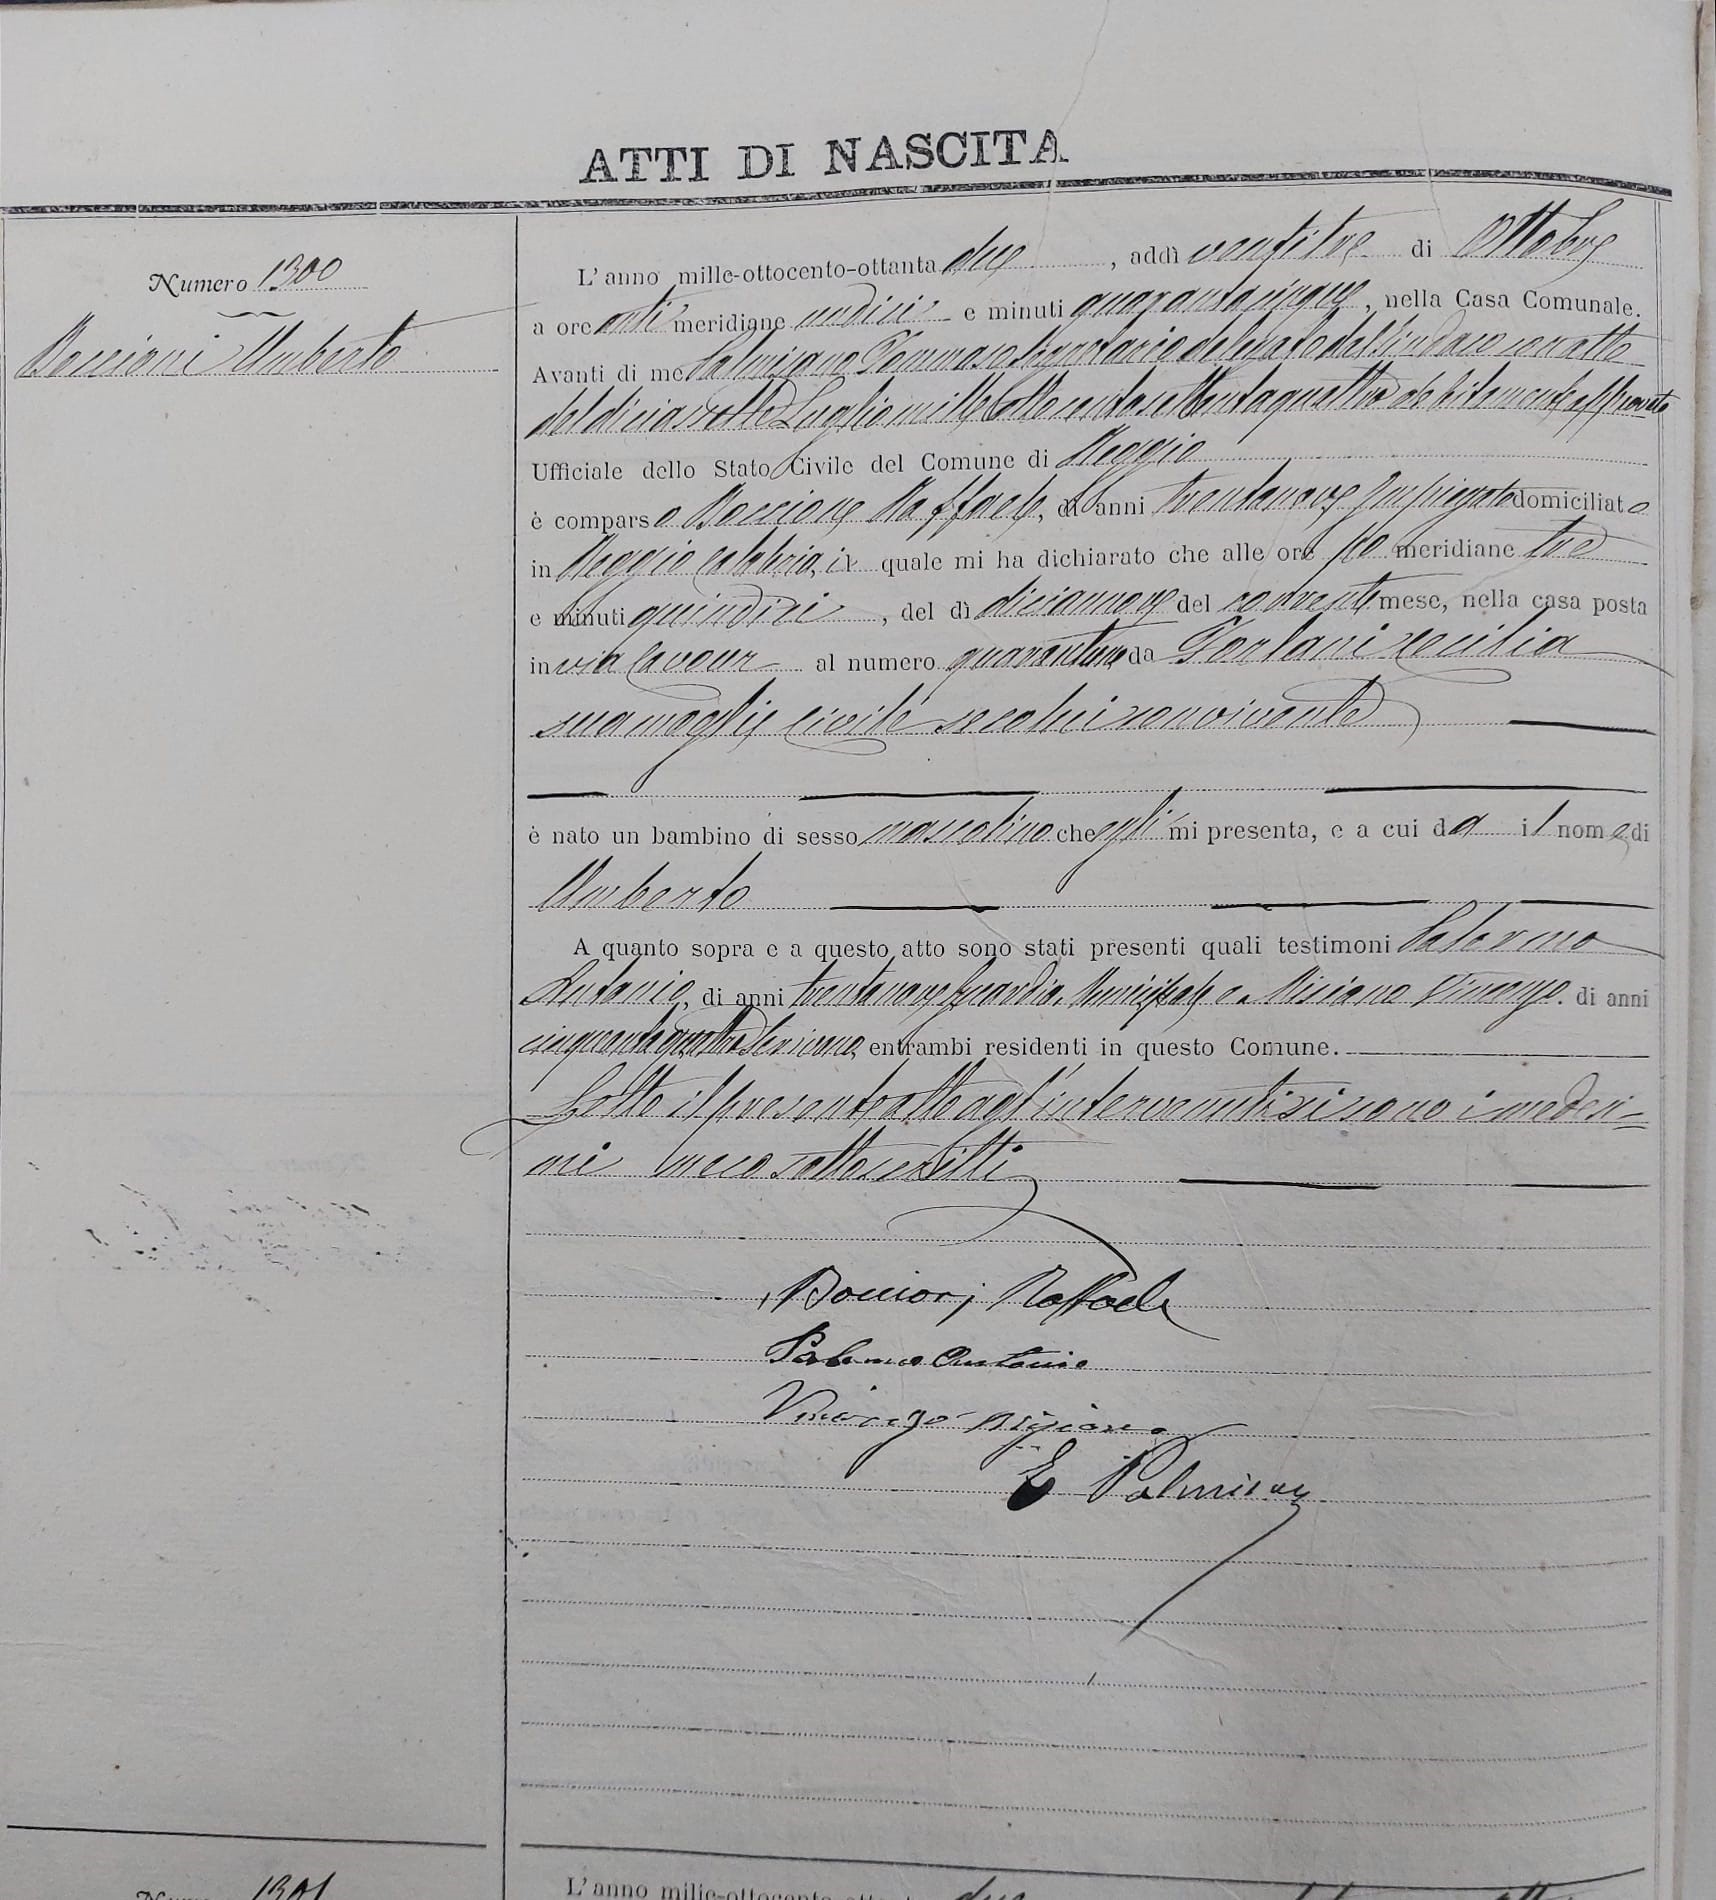 ATTI DI NASCITA
Numero 1300
Boccioni Umberto
L'anno mille-ottocento-ottanta due, addì ventitre di Ottobre
a ore anti meridiane undici e minuti quarantacinque, nella Casa Comunale.
Avanti di me Palmisano Tommaso Segretario delegato del Sindaco con atto
del diciassette Luglio mille ottocento settantaquattro debitamente approvato
Ufficiale dello Stato Civile del Comune di Reggio
è comparso Boccione Raffaele, di anni trentanove Impiegato domiciliato
in Reggio Calabria, il quale mi ha dichiarato che alle ore po meridiane tre
e minuti quindici, del dì diciannove del corrente mese, nella casa posta
in via Cavour al numero quarantuno da Forlani Cecilia
sua moglie civile seco lui convivente
è nato un bambino di sesso mascolino che egli mi presenta, e a cui da il nome di
Umberto
A quanto sopra e a questo atto sono stati presenti quali testimoni Salerno
Antonio, di anni trentanove Guardia Municipale e Misiano Vincenzo. di anni
cinquantaquattro Scrivano, entrambi residenti in questo Comune.
Letto il presente atto agl'intervenuti si sono i medesi=
mi meco sottoscritti
Boccioni Raffaele
Salerno Antonio
Vincenzo Misiano
Palmisano
Numero 1301
L'anno mille-ottocento-ottanta due